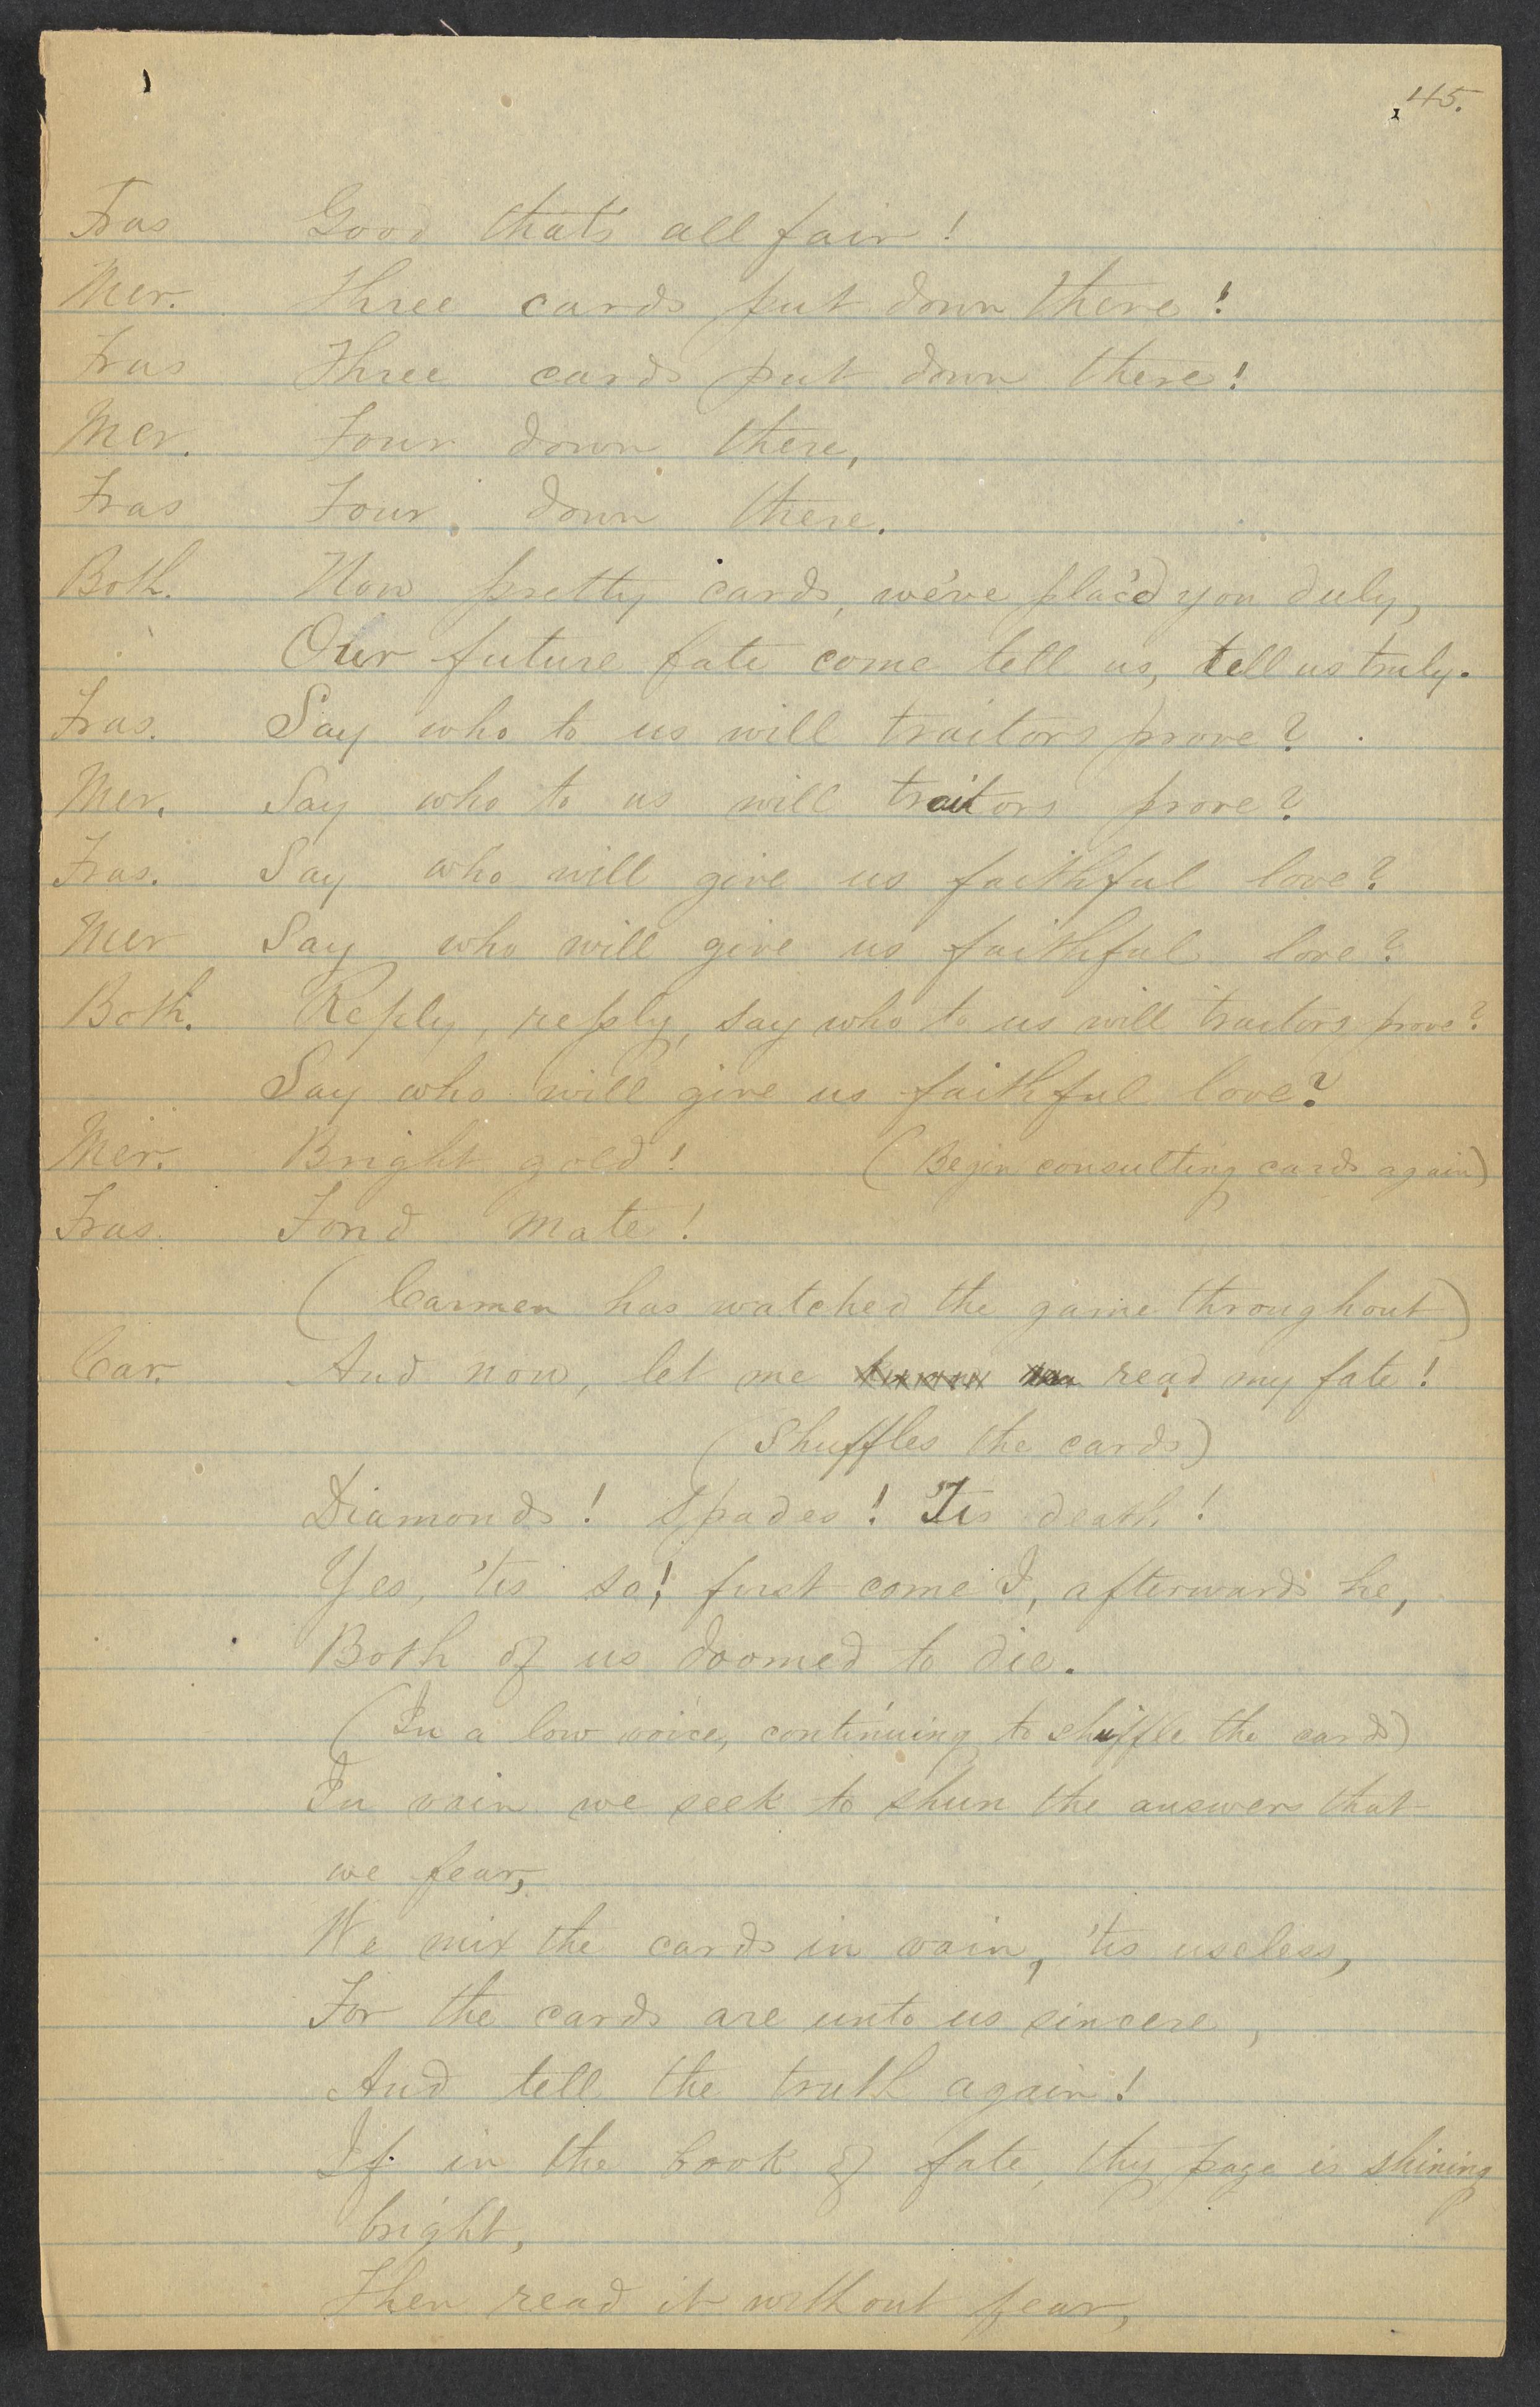 45.
Fras Good that's all fair!
Mer. Three cards put down there!
Fras Three cards put down there!
Mer. Four down there,
Fras Four down there.
Both. Now pretty cards, we've plac'd you duly,
Our future fate come tell us, tell us truly.
Fras. Say who to us will traitors prove?
Mer. Say who to us will traitors prove?
Fras. Say who will give us faithful love?
Mer Say who will give us faithful love?
Both. Reply, reply, say who to us will traitors prove?
Say who will give us faithful love?
Mer. Bright gold! (Begin consulting cards again)
Fras. Fond mate!
(Carmen has watched the game throughout)
Car. And now, let me read my fate!
(Shuffles the cards)
Diamonds! Spades! 'Tis death!
Yes, 'tis so! first come I, afterwards he,
Both of us doomed to die.
(In a low voice, continuing to shuffle the cards)
In vain we seek to shun the answers that
we fear,
We mix the cards in vain, 'tis useless,
For the cards are unto us sincere,
And tell the truth again!
If in the book of fate, thy page is shining
bright,
Then read it without fear,